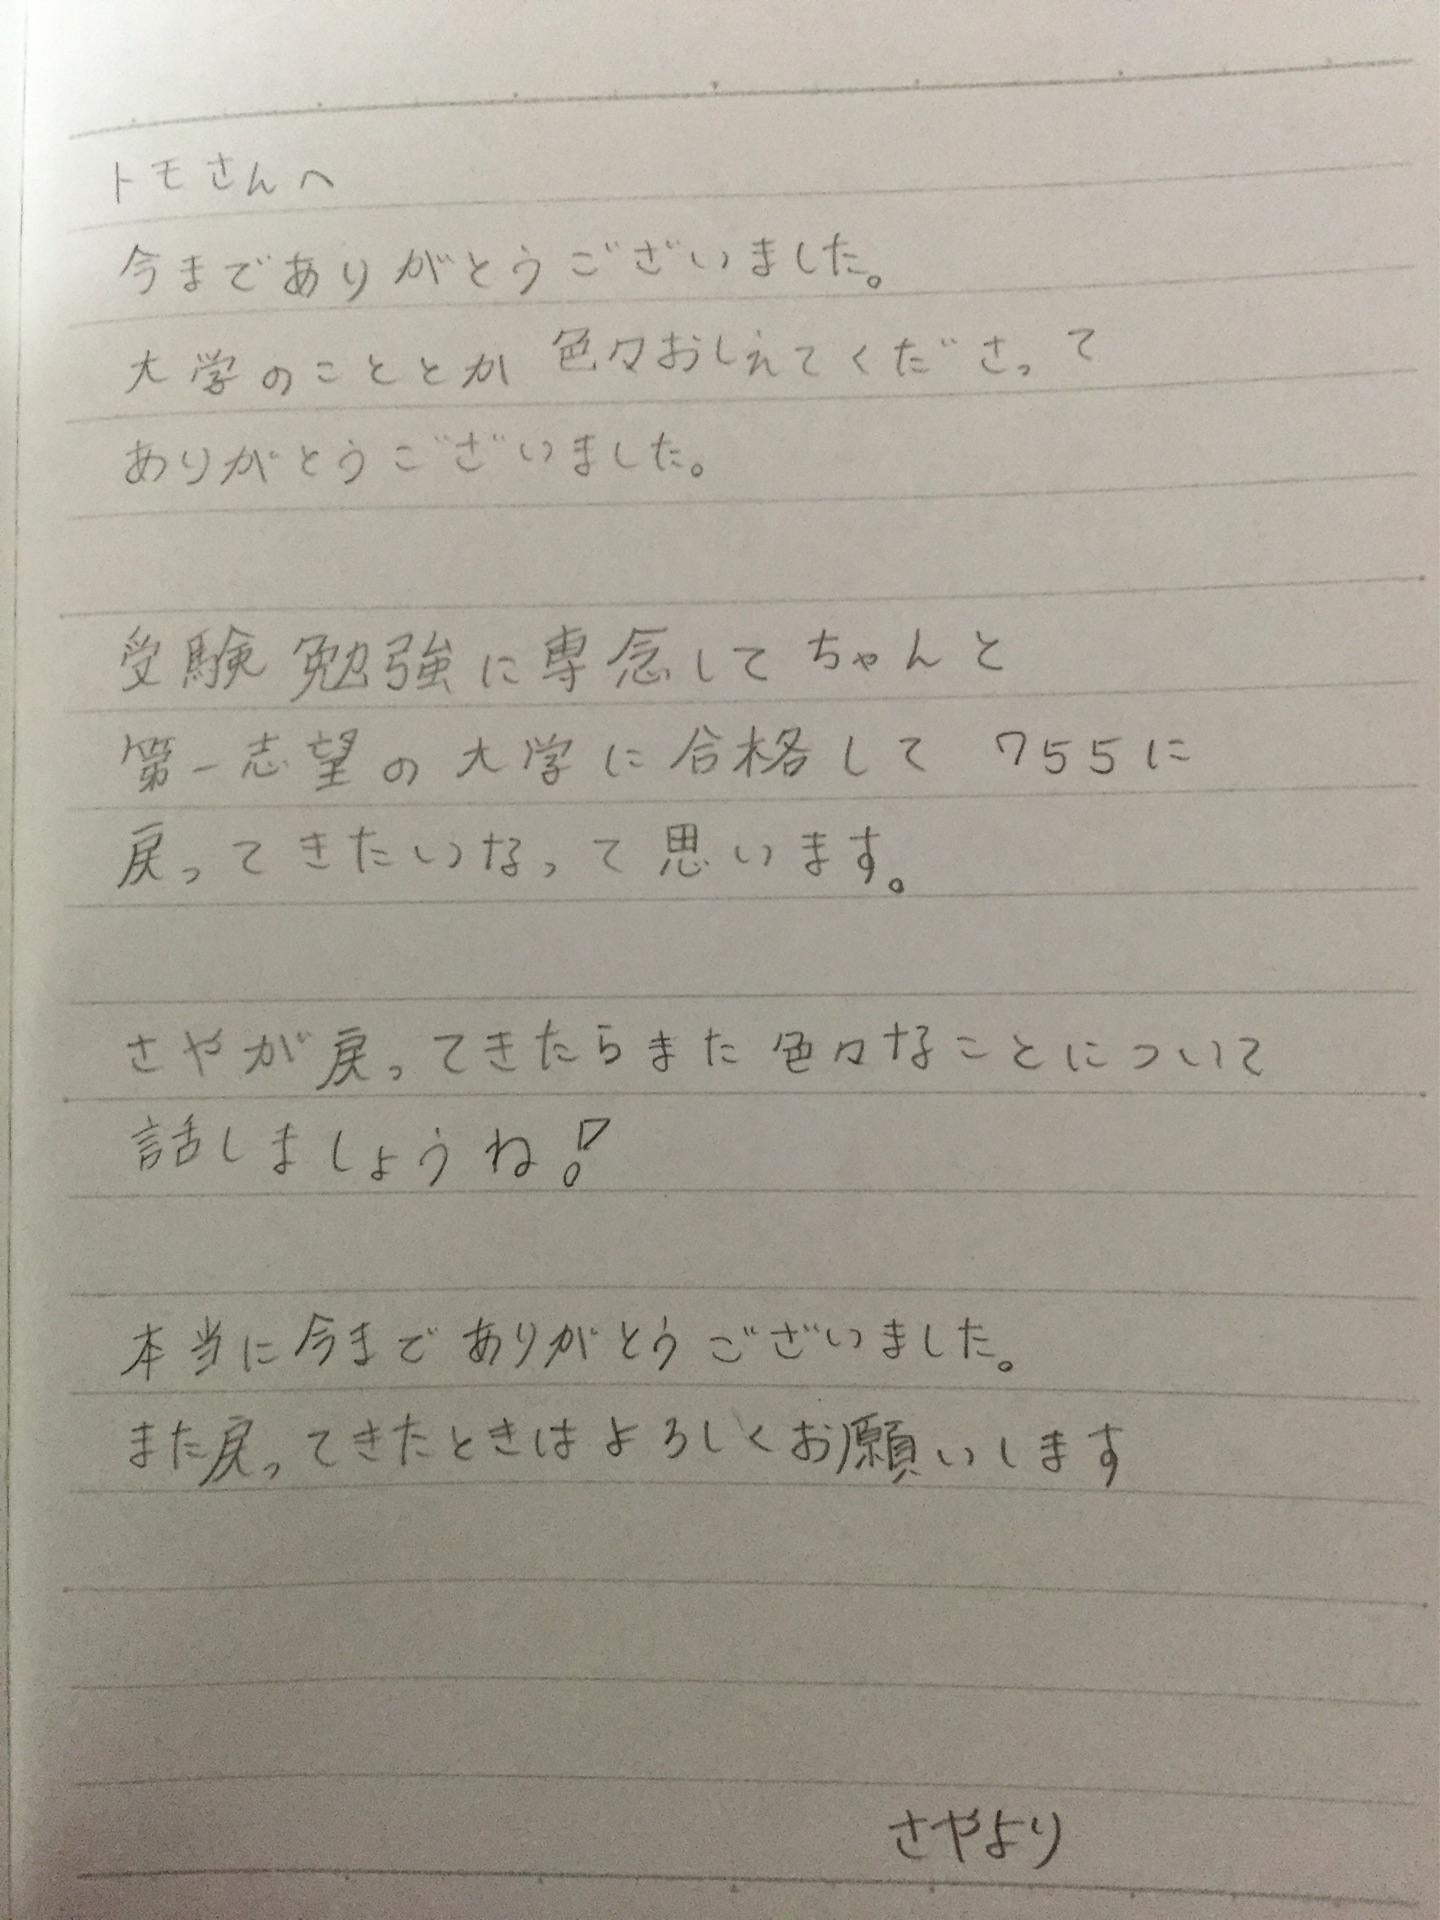 トモさんへ
今までありがとうございました。
大学のこととか 色々おしえてくださって
ありがとうございました。
受験勉強に専念してちゃんと
第一志望の大学に合格して 755に
戻ってきたいなって思います。
さやが戻ってきたらまた色々なことについて
話しましょうね!
本当に今までありがとうございました。
また戻ってきたときはよろしくお願いします
さやより